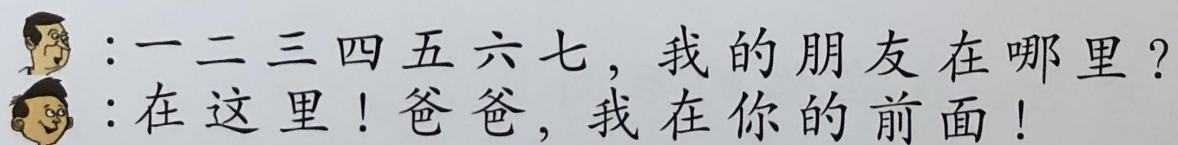 ：一二三四五六七，我的朋友在哪里？
：在这里！爸爸，我在你的前面！